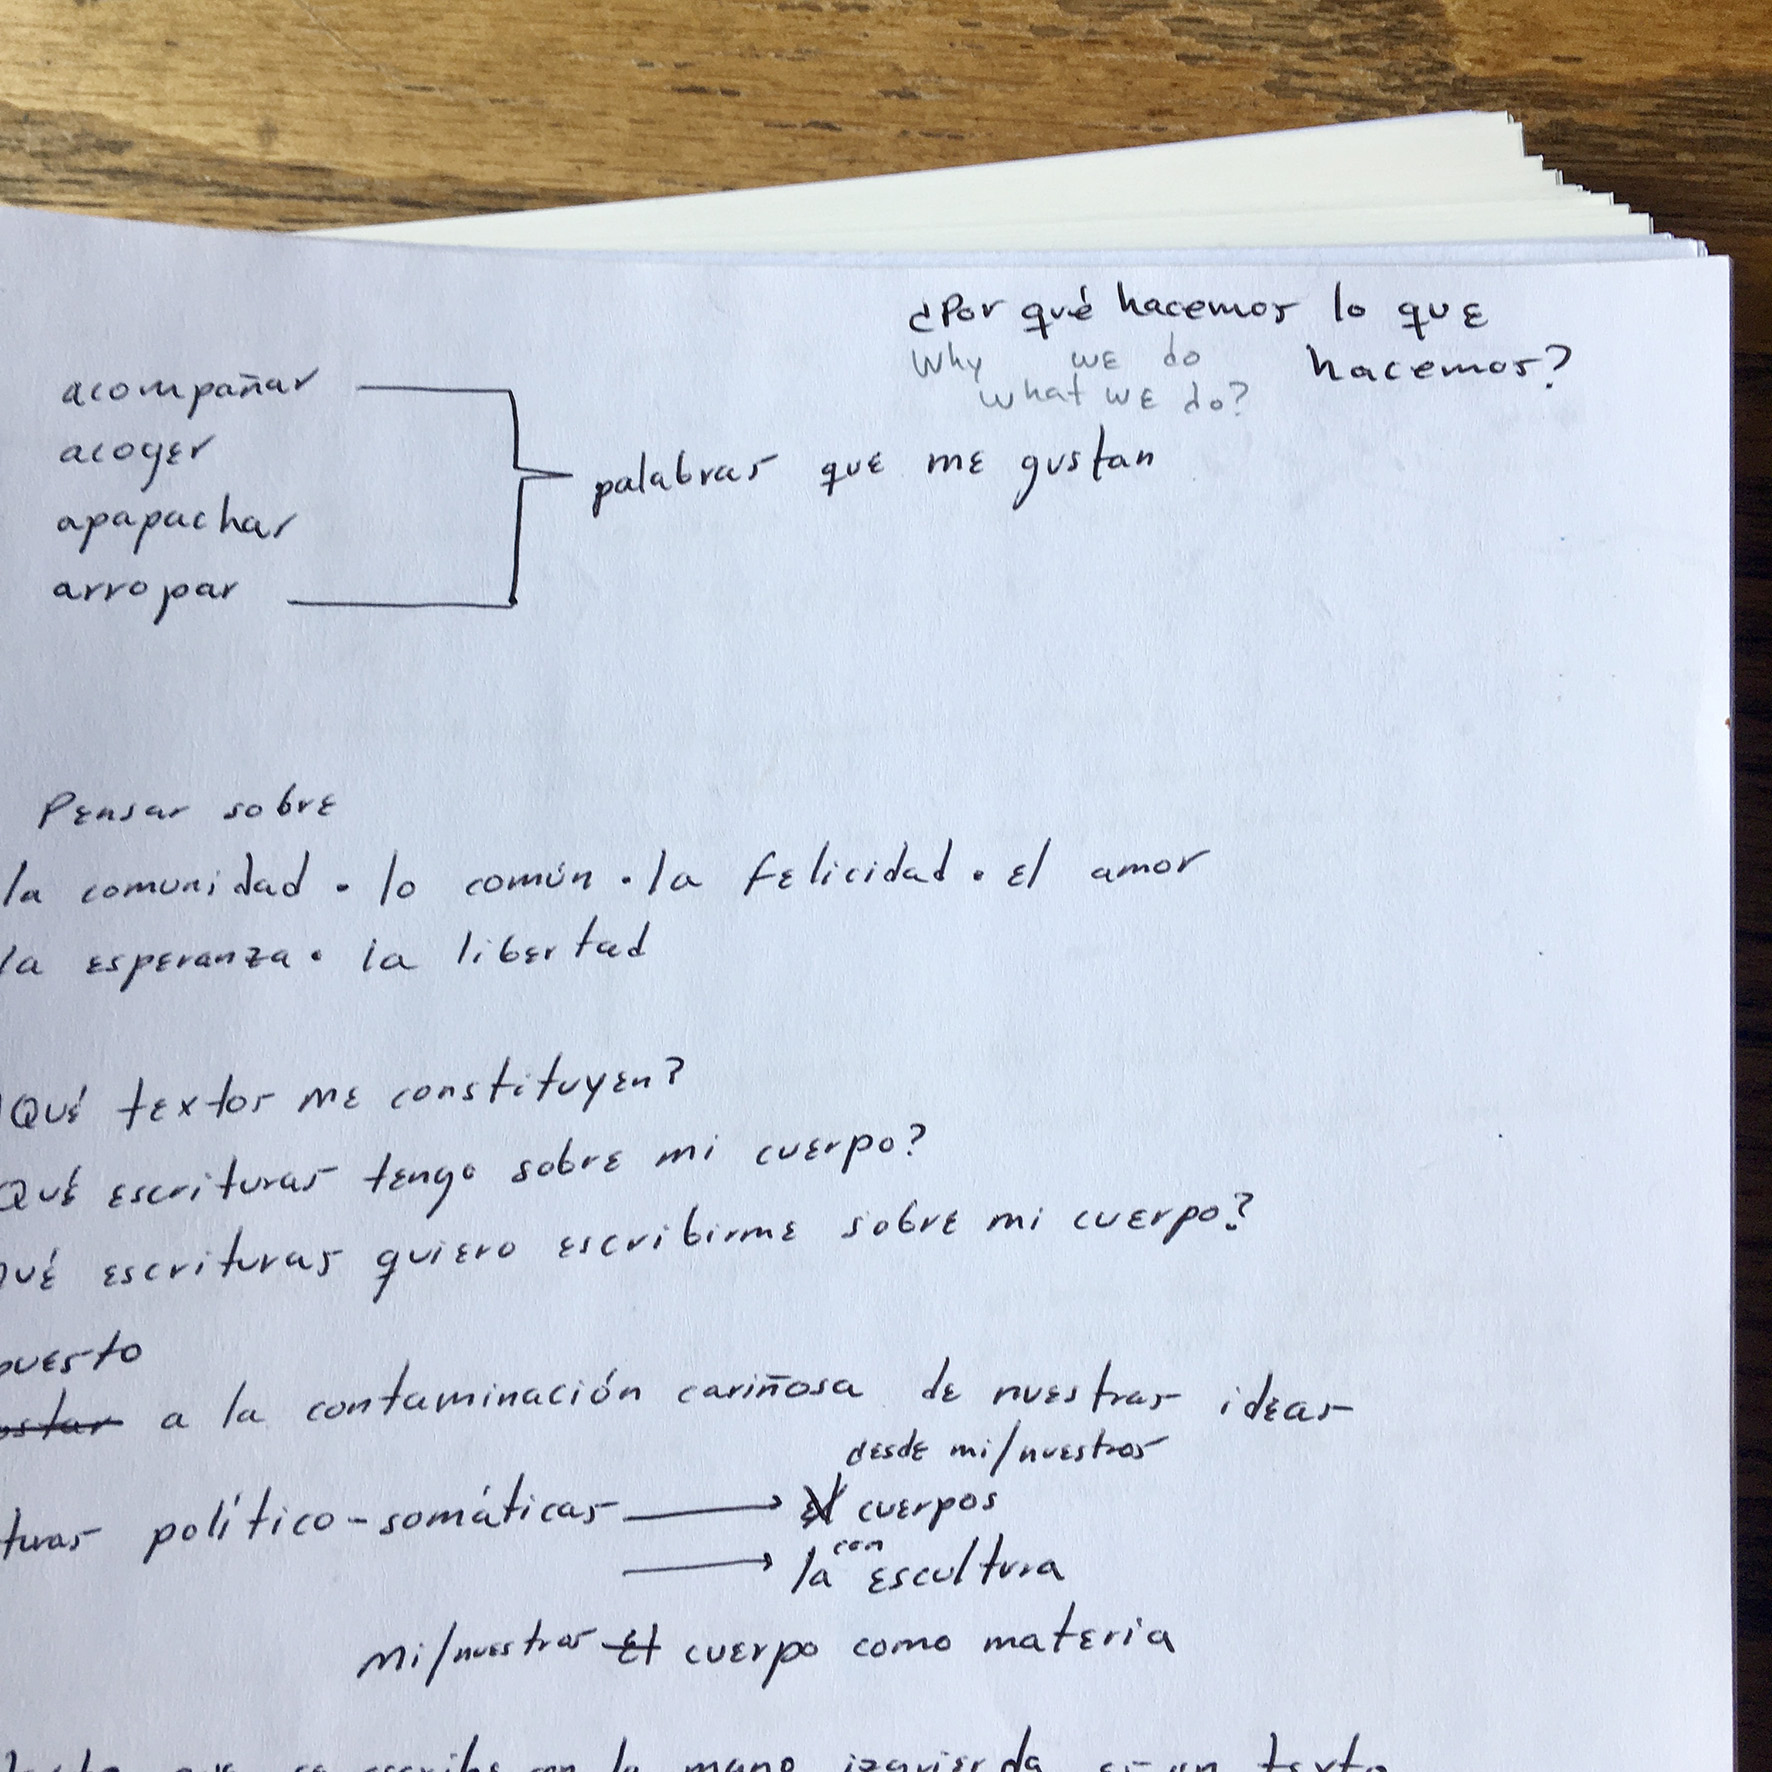 ¿Por qué hacemos lo que
hacemos?
Why we do
what we do?
acompañar
acoger
apapachar
arropar
palabras que me gustan
Pensar sobre
la comunidad . lo común . la felicidad . el amor
la esperanza . la libertad
Qué textos me constituyen?
Qué escrituras tengo sobre mi cuerpo?
ué escrituras quiero escribirme sobre mi cuerpo?
puesto
a la contaminación cariñosa de nuestras ideas
desde mi/nuestros
turas político-somáticas → El cuerpos
con
→ la escultura
mi/nuestros El cuerpo como materia
que se escribe en la mano izquierda es un texto